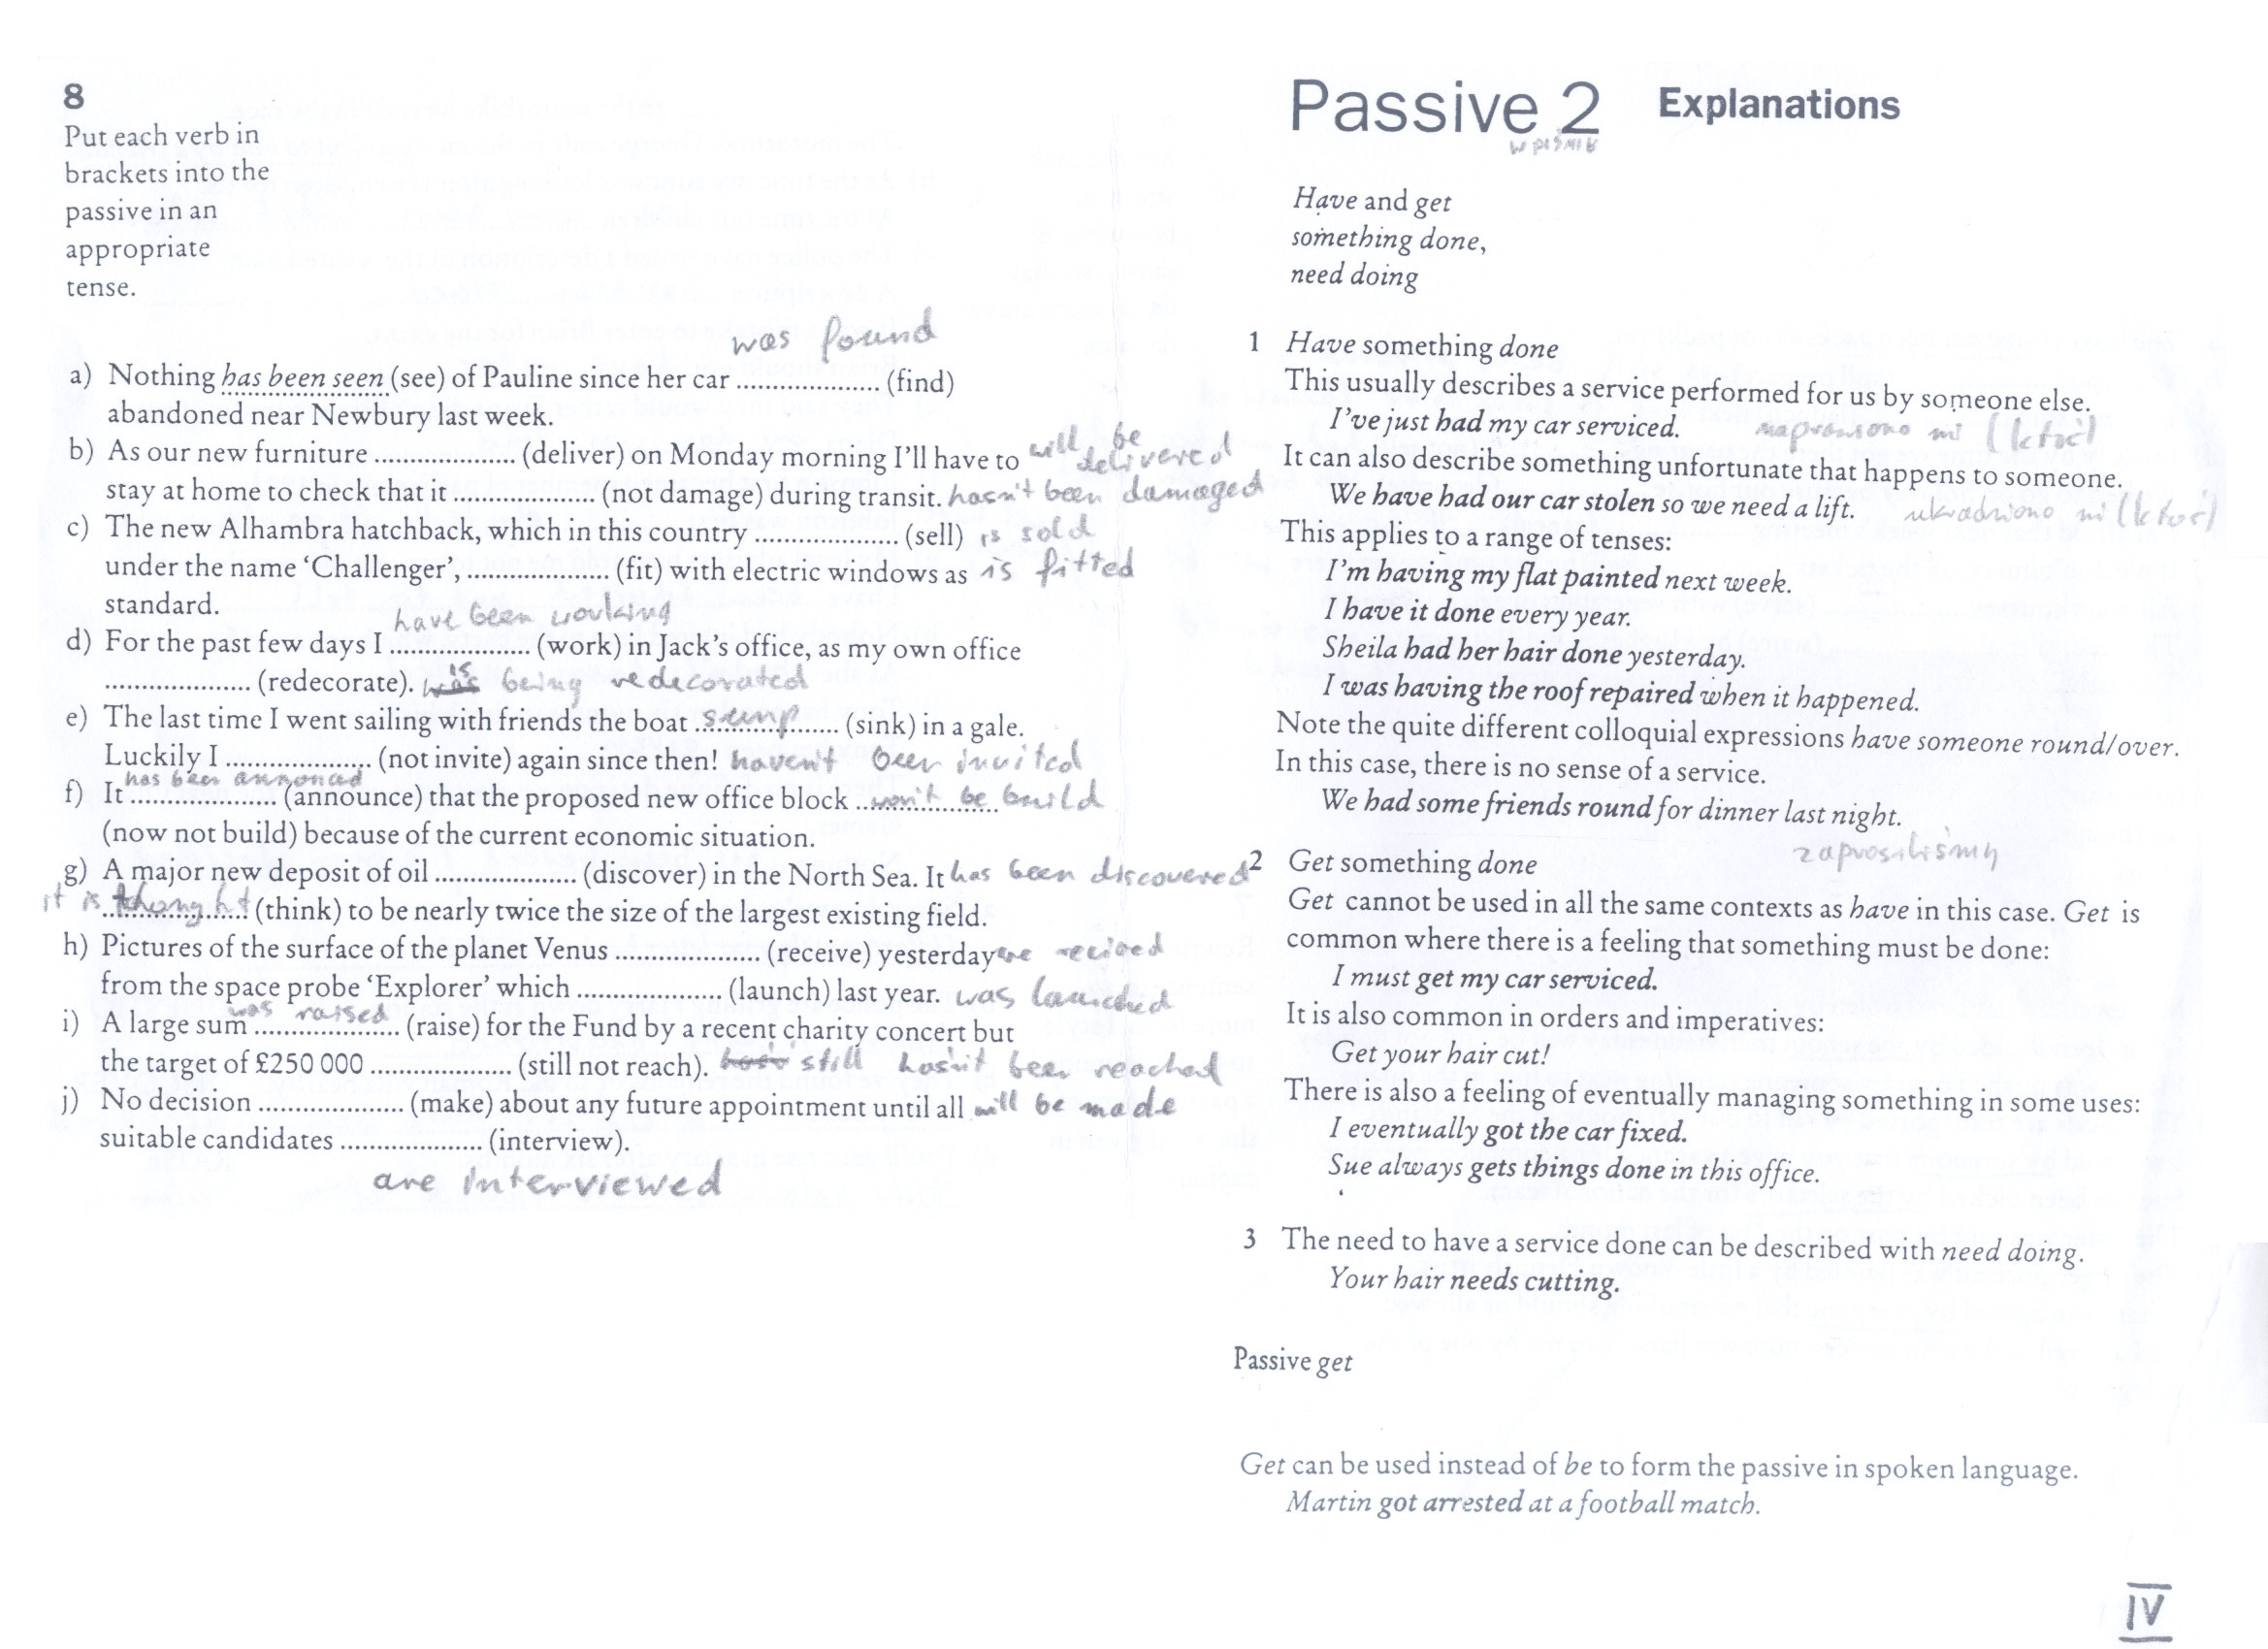 8
Put each verb in
brackets into the
passive in an
appropriate
tense.
was found
a) Nothing has been seen (see) of Pauline since her car .................... (find)
abandoned near Newbury last week.
b) As our new furniture .................... (deliver) on Monday morning I'll have to will be delivered
stay at home to check that it .................... (not damage) during transit. hasn't been damaged
c) The new Alhambra hatchback, which in this country .................... (sell) is sold
under the name 'Challenger', .................... (fit) with electric windows as is fitted
standard.
have been working
d) For the past few days I .................... (work) in Jack's office, as my own office
.................... (redecorate). was is being redecorated
e) The last time I went sailing with friends the boat .................... (sink) in a gale.
Luckily I .................... (not invite) again since then! haven't been invited
has been
f) It .................... (announce) that the proposed new office block won't be build
(now not build) because of the current economic situation.
g) A major new deposit of oil .................... (discover) in the North Sea. It has been discovered
it is thought (think) to be nearly twice the size of the largest existing field.
h) Pictures of the surface of the planet Venus .................... (receive) yesterday
from the space probe 'Explorer' which .................... (launch) last year. was launched
was raised
i) A large sum .................... (raise) for the Fund by a recent charity concert but
the target of £250 000 .................... (still not reach). still hasn't been reached
j) No decision .................... (make) about any future appointment until all will be made
suitable candidates .................... (interview).
are interviewed
Passive 2 Explanations
Have and get
something done,
need doing
1 Have something done
This usually describes a service performed for us by someone else.
I've just had my car serviced. naprawiono mi (ktoś)
It can also describe something unfortunate that happens to someone.
We have had our car stolen so we need a lift. ukradziono mi (ktoś)
This applies to a range of tenses:
I'm having my flat painted next week.
I have it done every year.
Sheila had her hair done yesterday.
I was having the roof repaired when it happened.
Note the quite different colloquial expressions have someone round/over.
In this case, there is no sense of a service.
We had some friends round for dinner last night.
zaprosiliśmy
2 Get something done
Get cannot be used in all the same contexts as have in this case. Get is
common where there is a feeling that something must be done:
I must get my car serviced.
It is also common in orders and imperatives:
Get your hair cut!
There is also a feeling of eventually managing something in some uses:
I eventually got the car fixed.
Sue always gets things done in this office.
3 The need to have a service done can be described with need doing.
Your hair needs cutting.
Passive get
Get can be used instead of be to form the passive in spoken language.
Martin got arrested at a football match.
IV